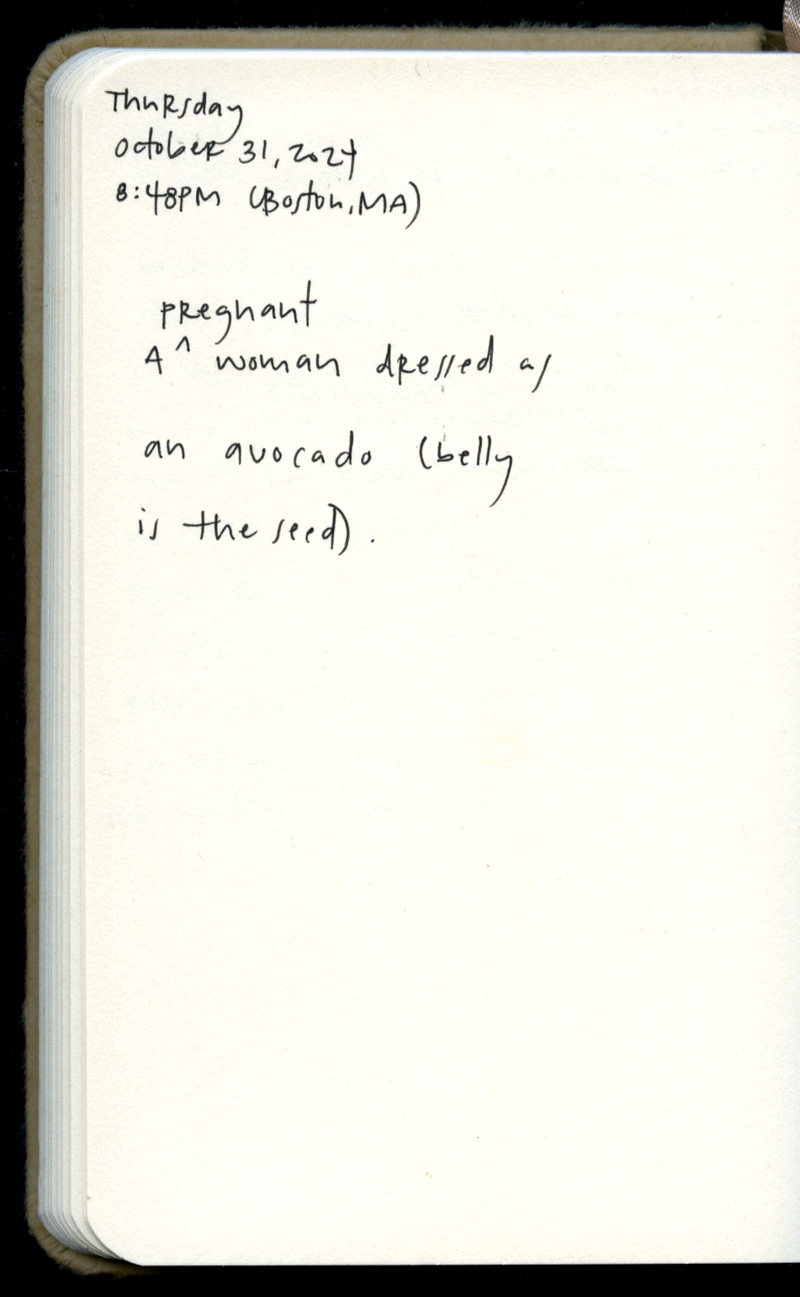 Thursday
October 31, 2024
8:48PM (Boston, MA)
pregnant
A ^ woman dressed as
an avocado (belly
is the seed).